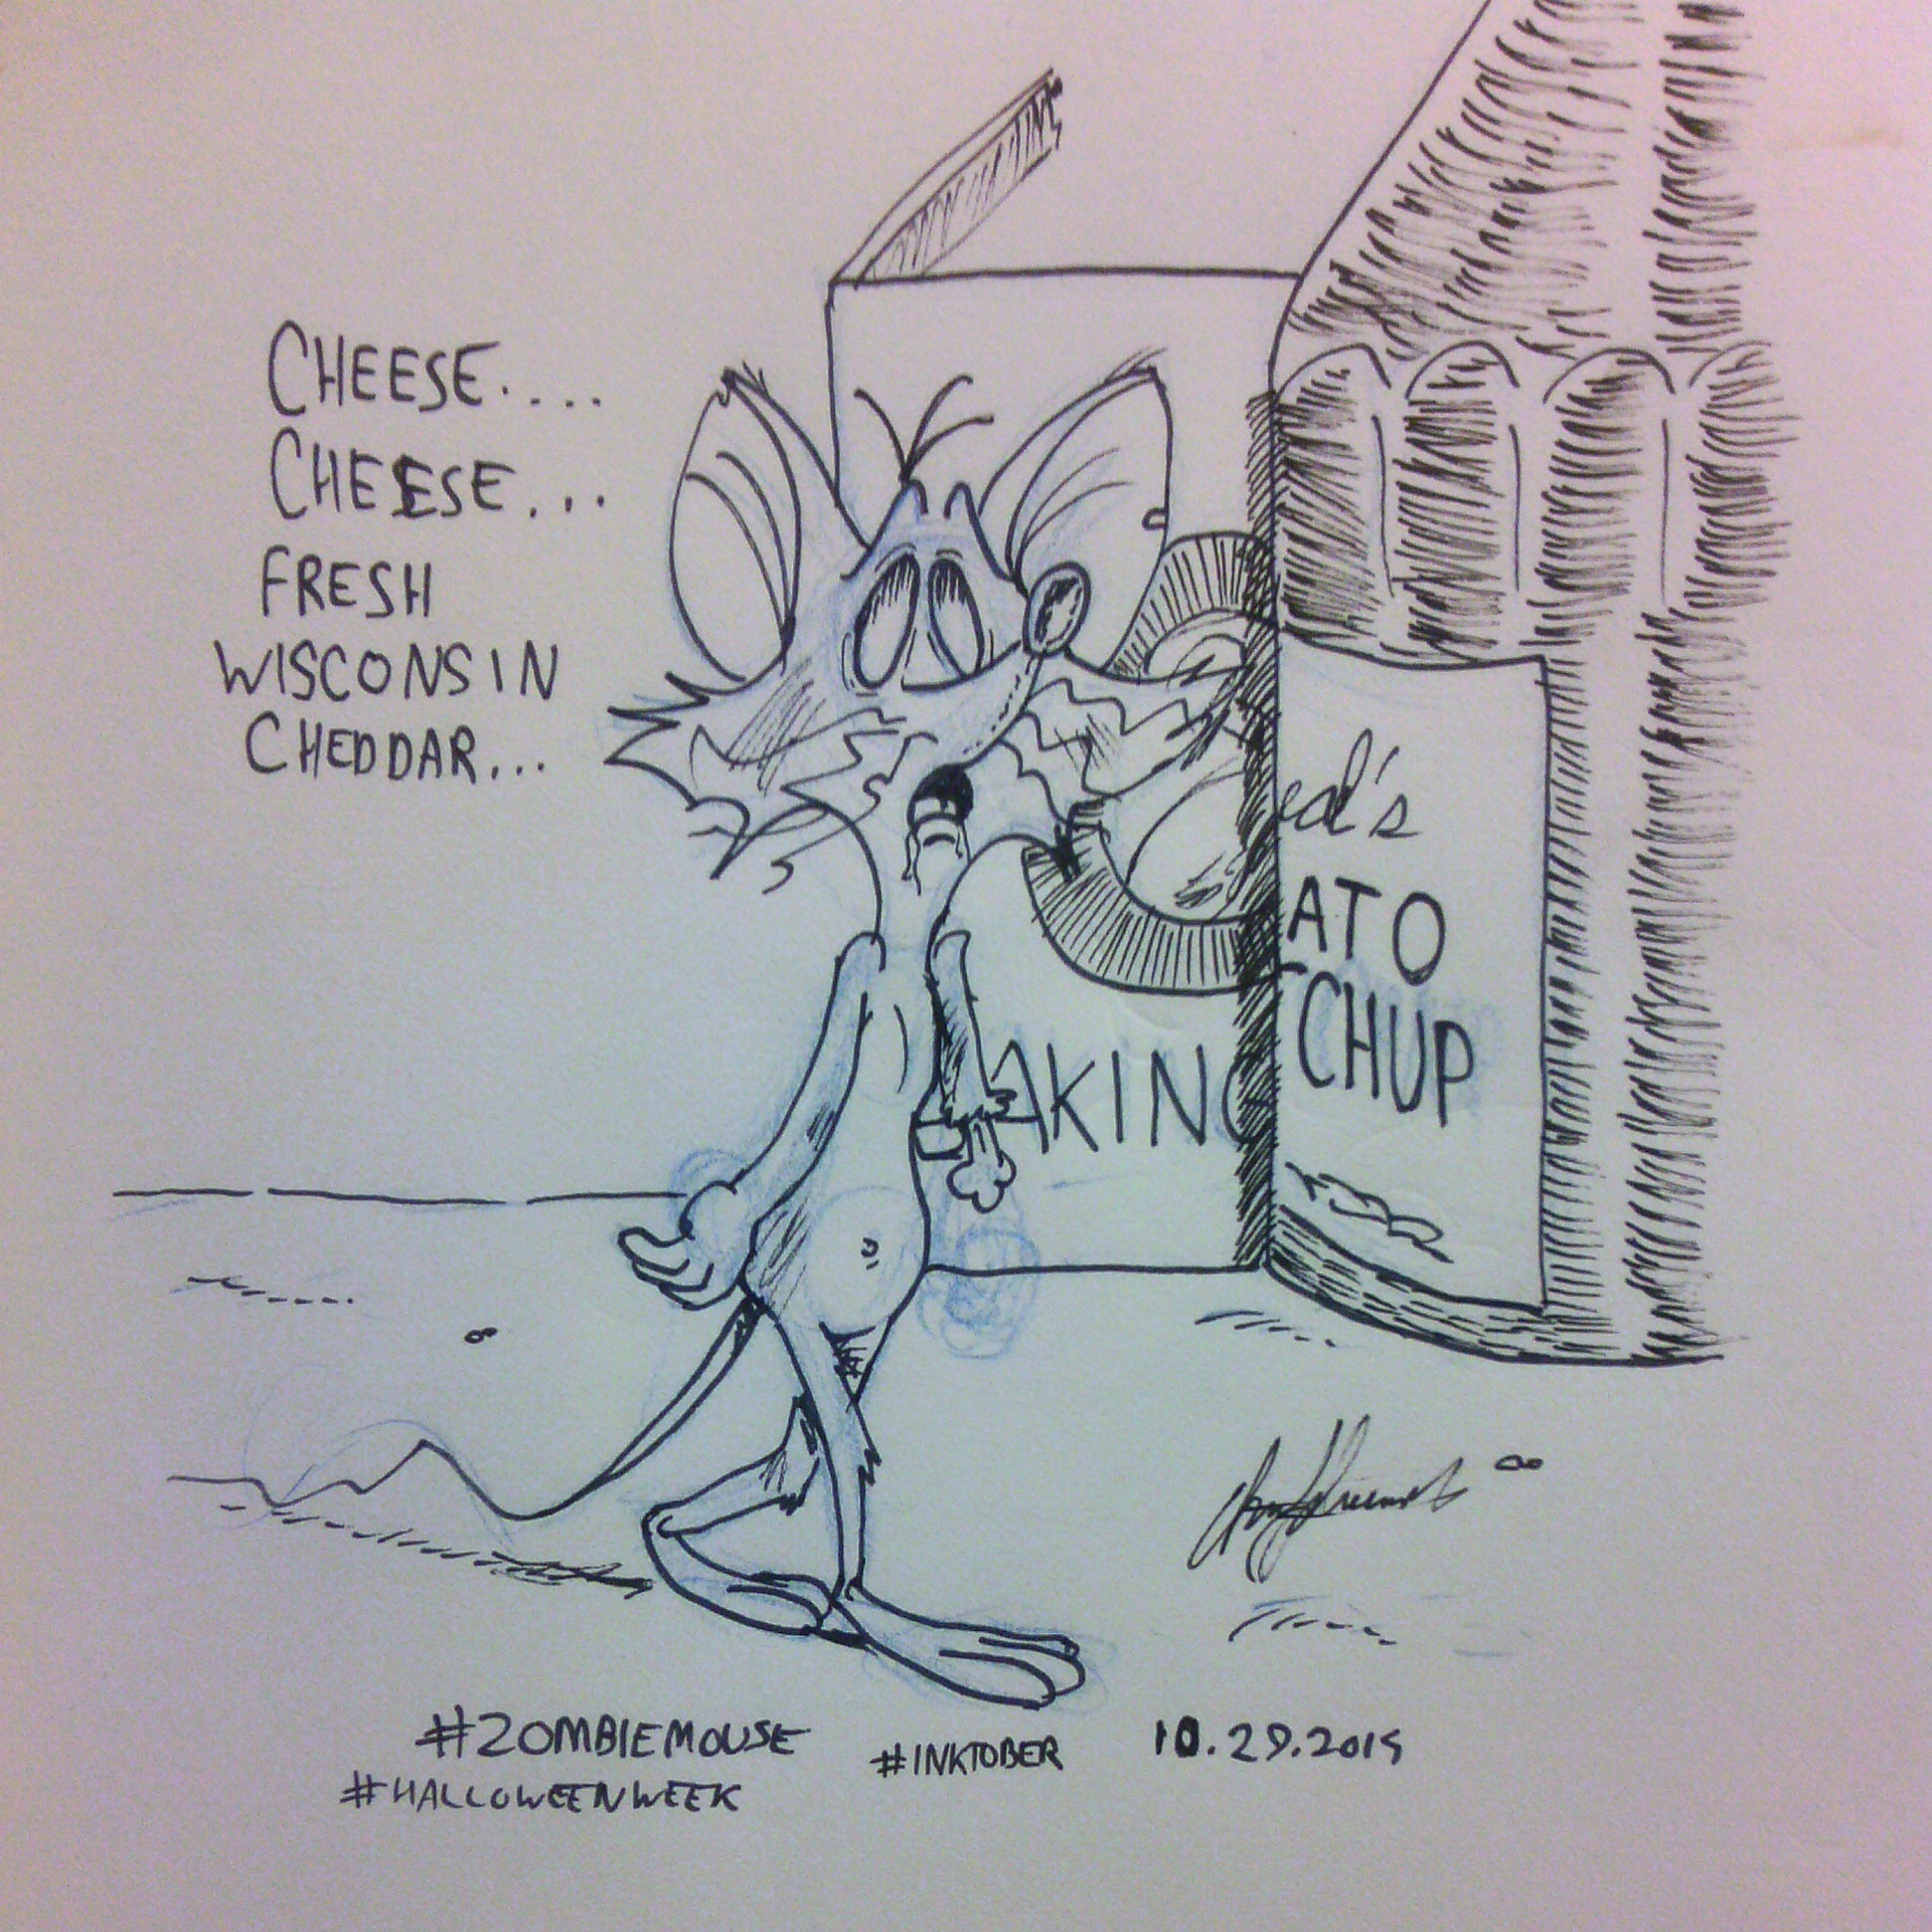 CHEESE....
CHEESE...
FRESH
WISCONSIN
CHEDDAR...
ed's
ATO
TCHUP
AKING
#ZOMBIEMOUSE
#INKTOBER
10.29.2015
#HALLOWEENWEEK